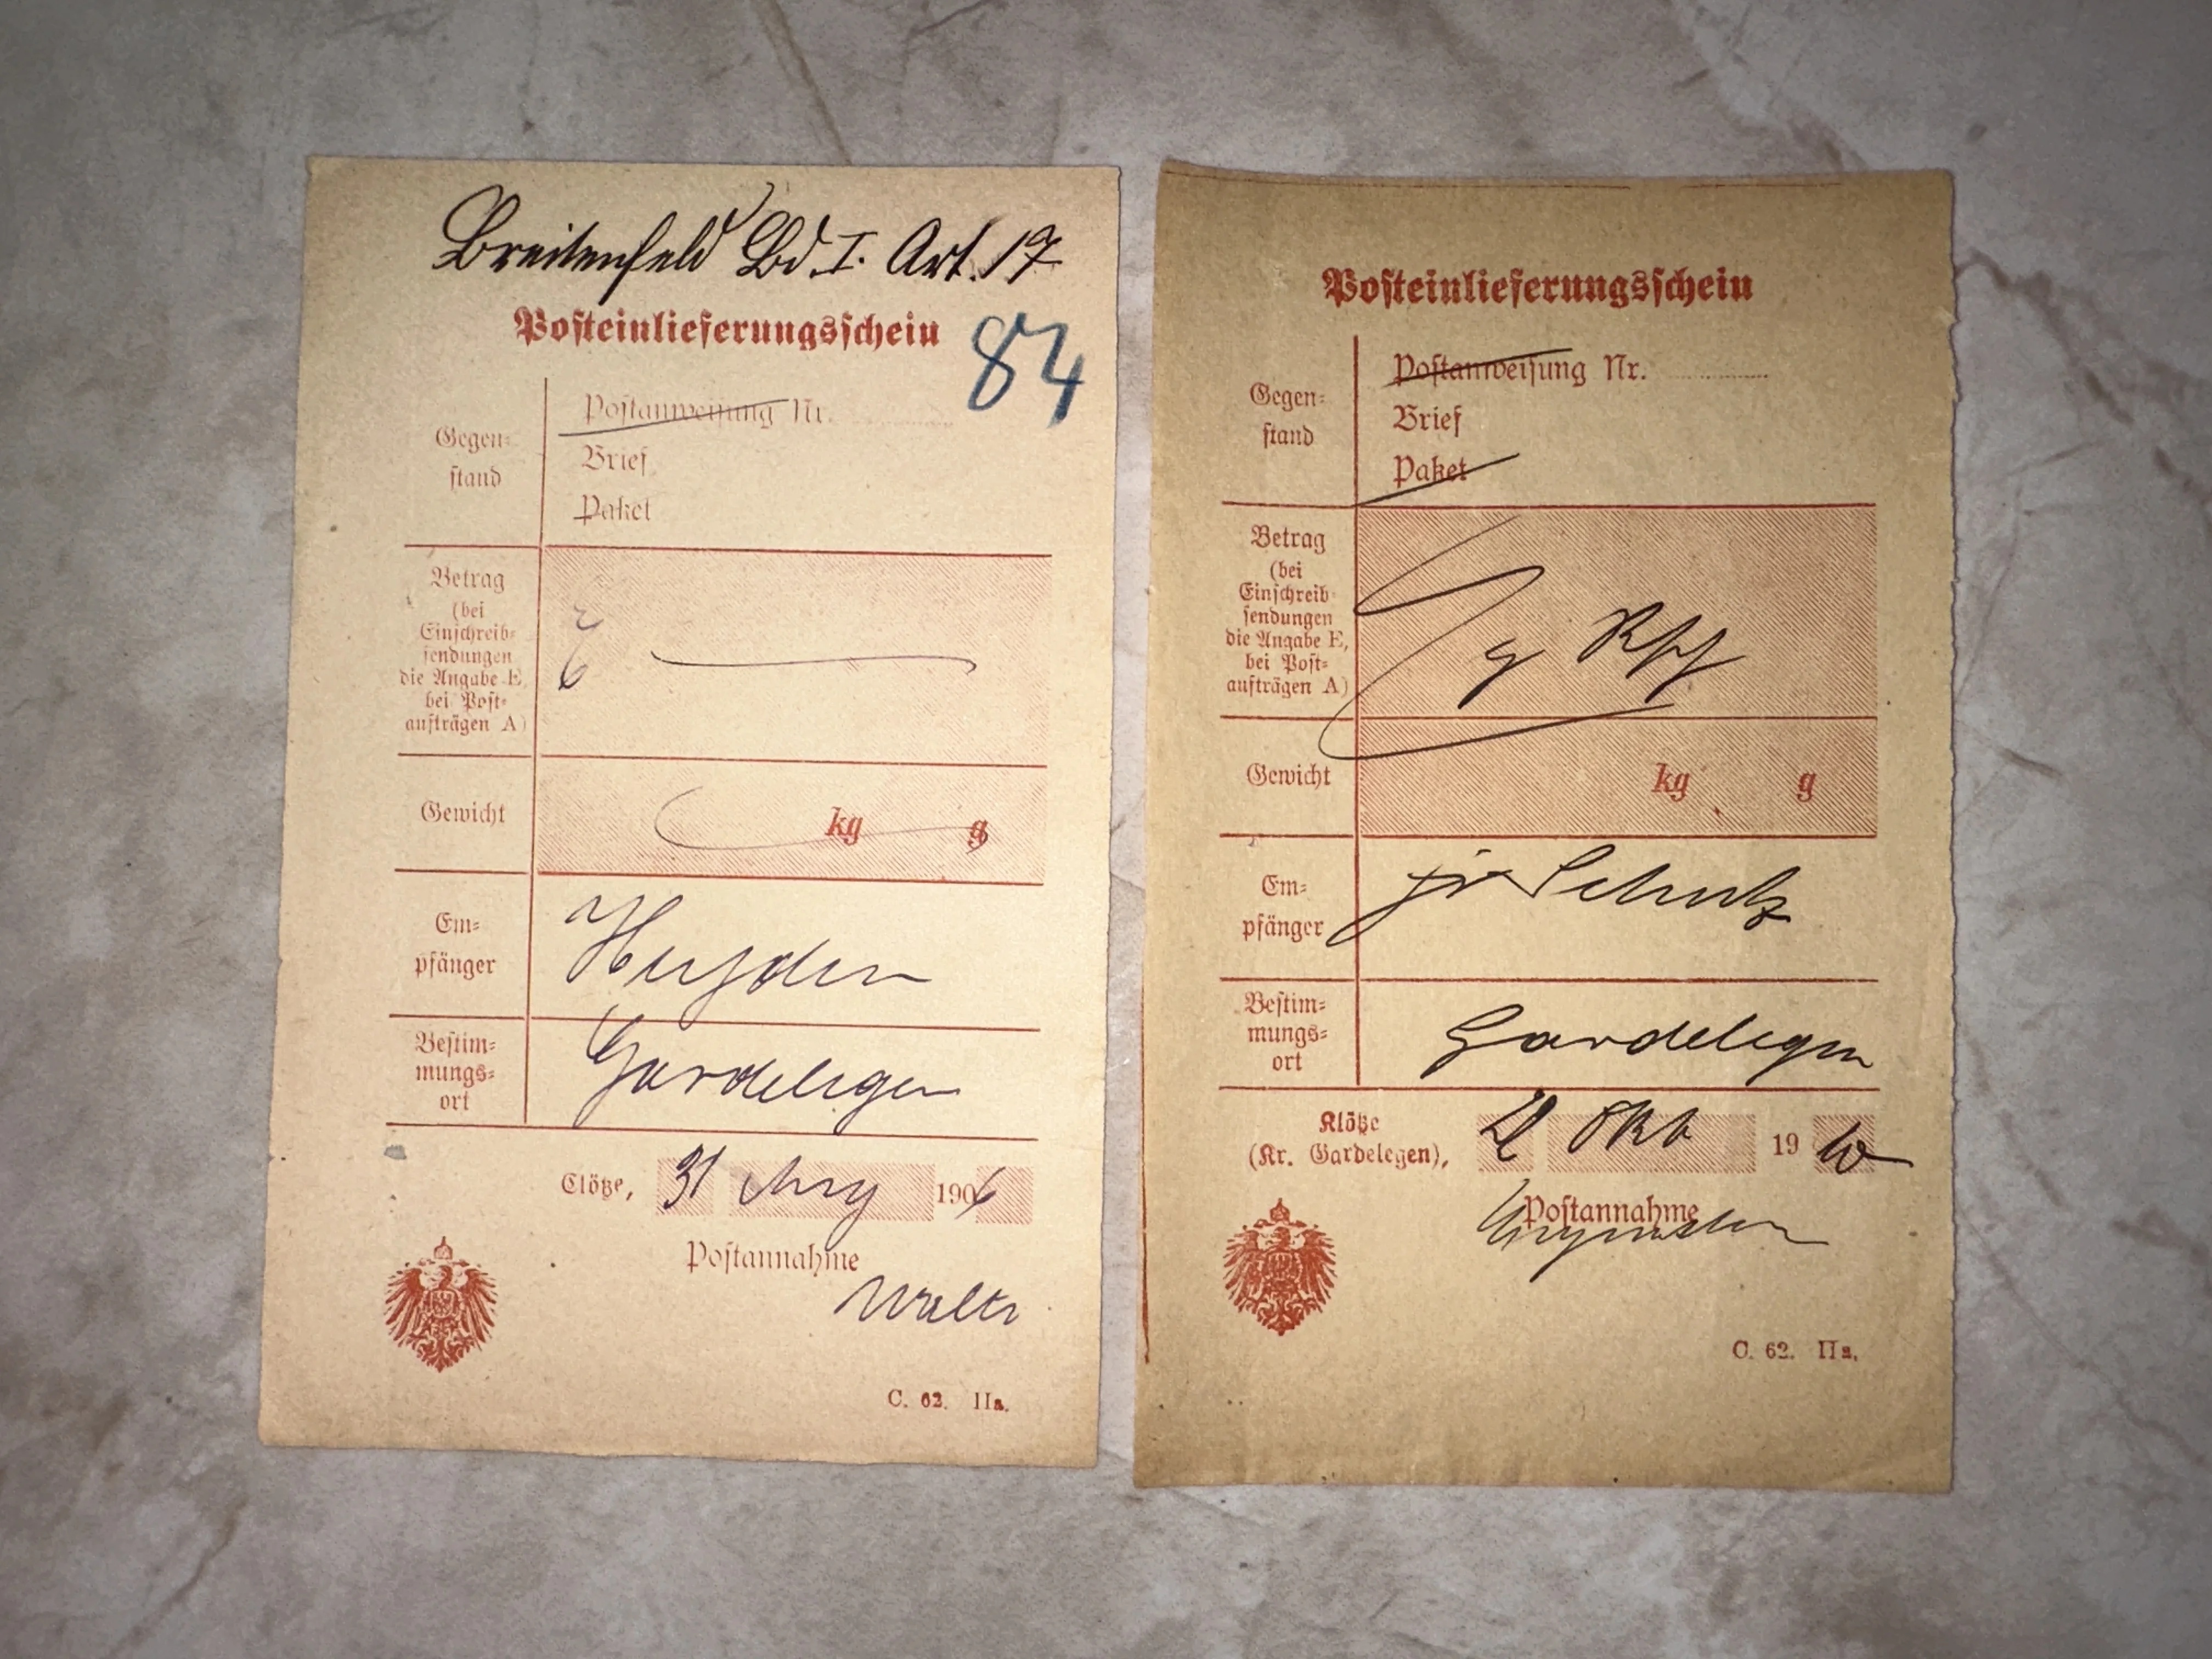 Breitenfeld Bd. I. Art. 17
Posteinlieferungsschein
84
Gegen-
stand
Postanweisung Nr.
Brief
Paket
Betrag
(bei
Einschreib-
sendungen
die Angabe E,
bei Post-
aufträgen A)
E
Gewicht
kg g
Em-
pfänger
Heyden
Bestim-
mungs-
ort
Gardelegen
Clötze, 31 1906
Postannahme
C. 62. IIa.
Posteinlieferungsschein
Gegen-
stand
Postanweisung Nr.
Brief
Paket
Betrag
(bei
Einschreib-
sendungen
die Angabe E,
bei Post-
aufträgen A)
Gewicht
kg g
Em-
pfänger
Schulz
Bestim-
mungs-
ort
Gardelegen
Klötze
(Kr. Gardelegen), Okt 19 10
Postannahme
C. 62. IIa.